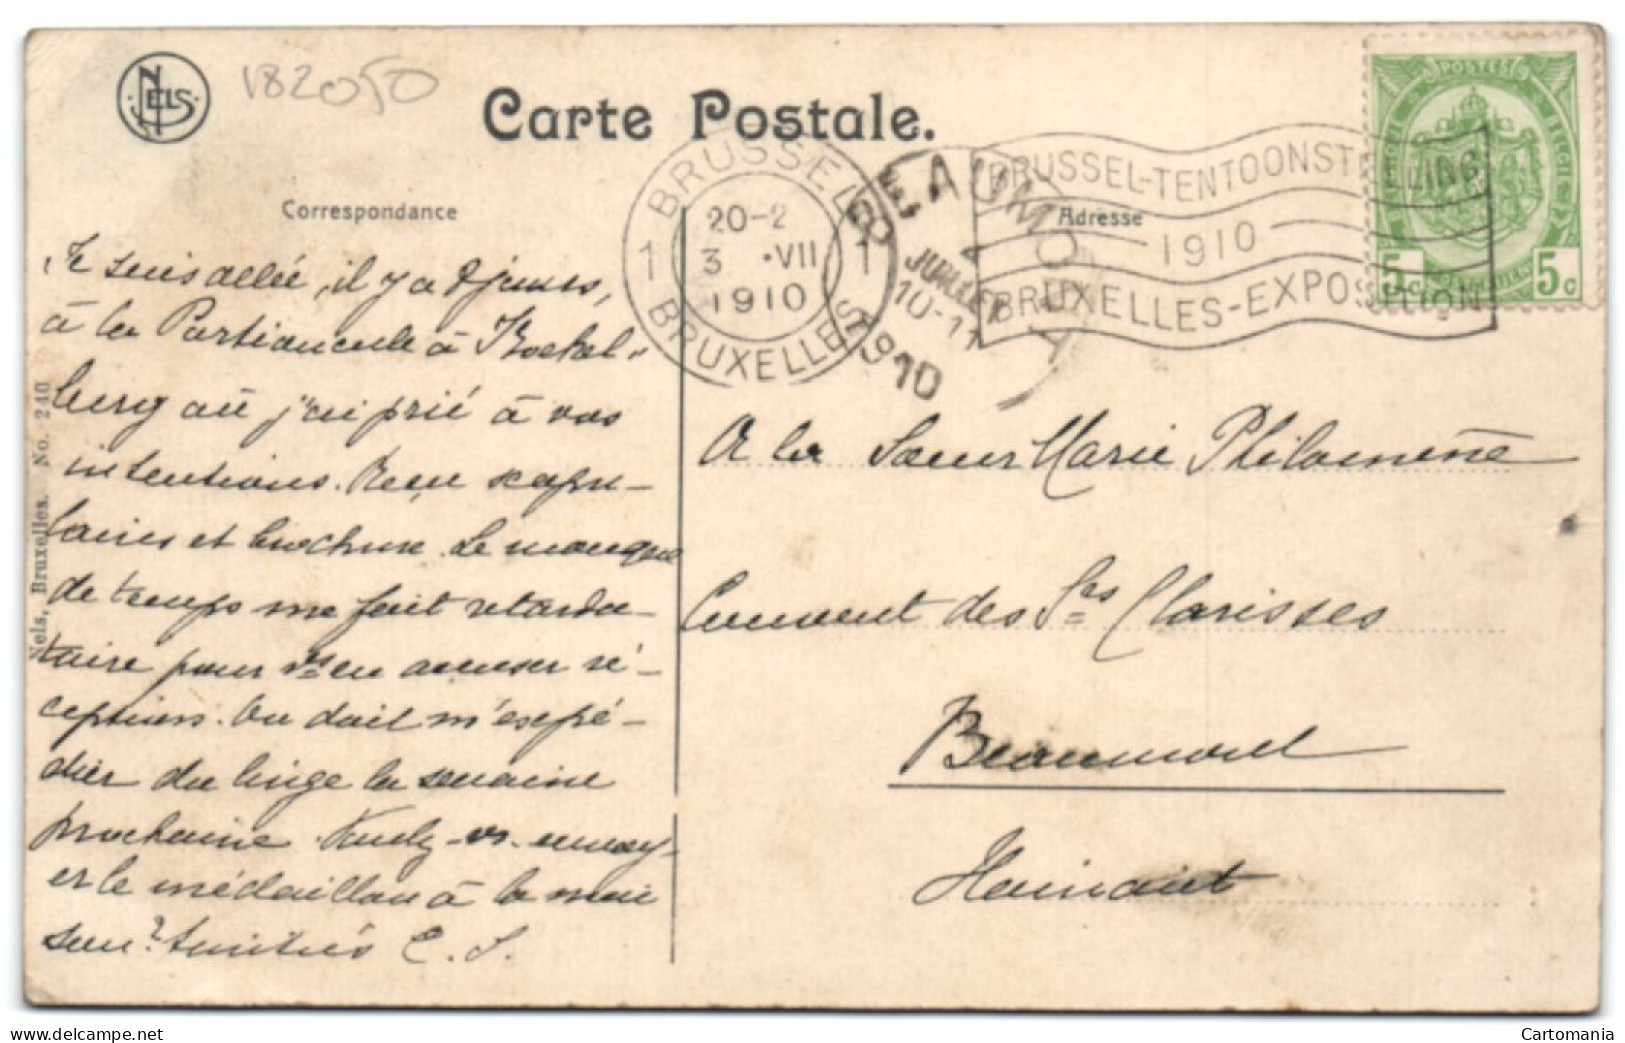 NELS
182050
Carte Postale.
Correspondance
Adresse
BRUSSEL 1
20-2
3 ·VII
1910
1 BRUXELLES 1
BEAUMONT
4
JUILLET
10-11
1910
BRUSSEL-TENTOONSTELLING
1910
BRUXELLES-EXPOSITION
POSTES
5c 5c
Je suis allée, il y a 8 jours,
à la Portioncule à Koekel-
berg où j'ai prié à vos
intentions. Reçu scapu-
laires et brochure. Le manque
de temps me fait retarda-
taire pour vs en accuser ré-
ceptions. On doit m'expé-
dier du linge la semaine
prochaine. Veuillez-vs. envoy-
er le médaillon à la mai
son? Amitiés C. S.
A la Sœur Marie Philomène
Couvent des Srs Clarisses
Beaumont
Hainaut
Nels, Bruxelles. No. 240
Cartomania
www.delcampe.net